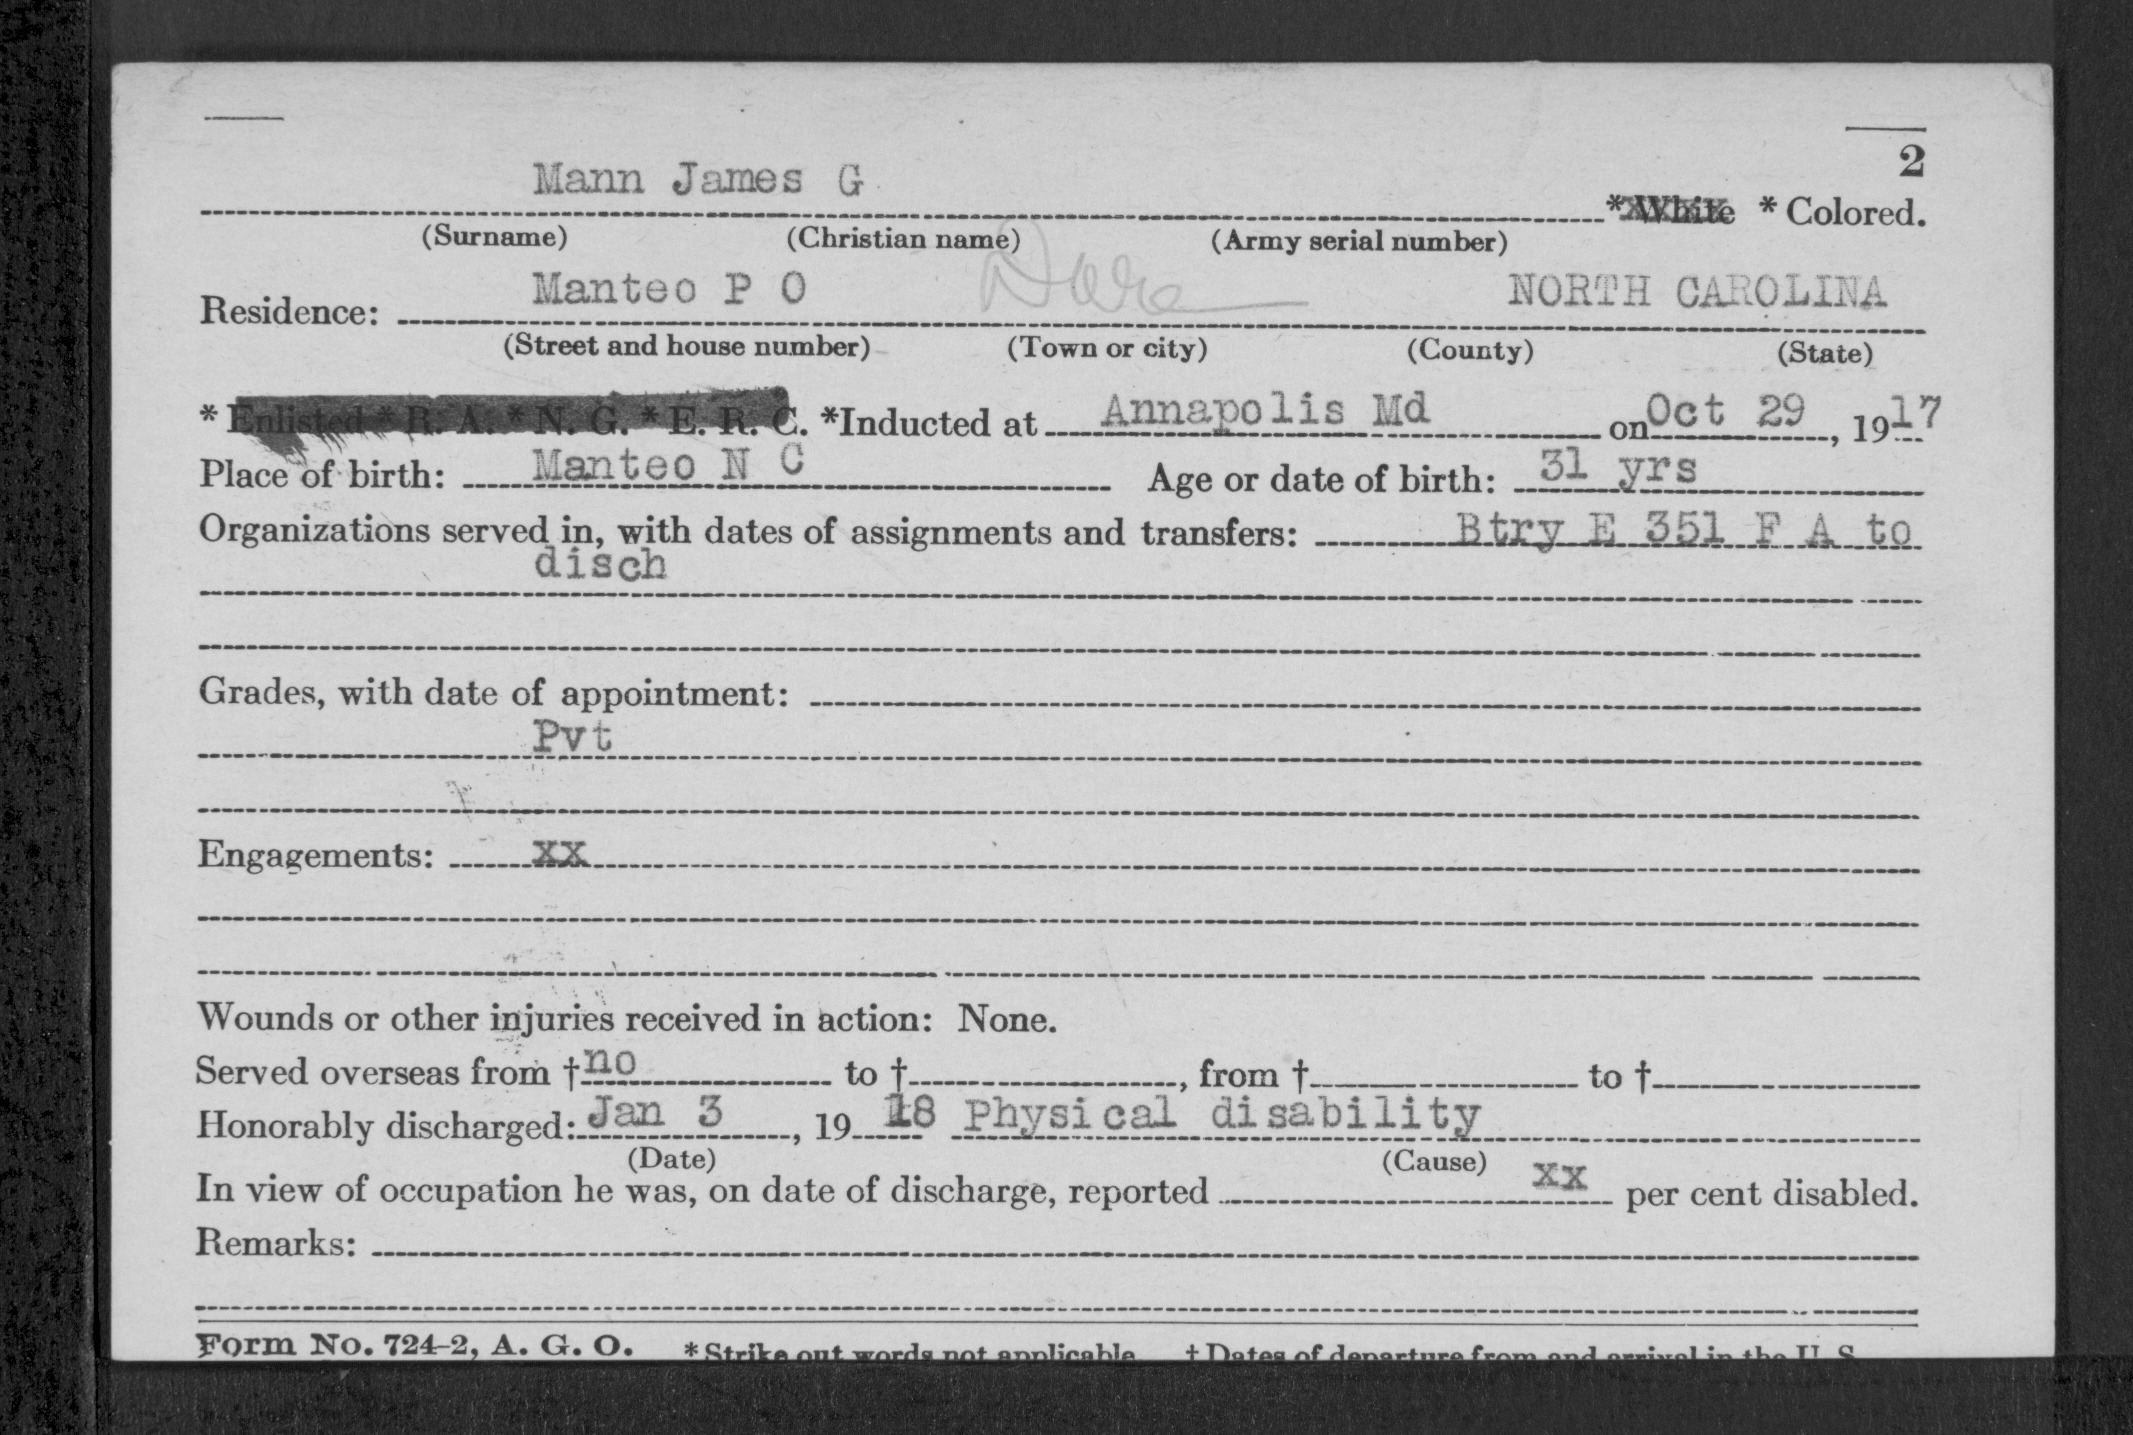 2
Mann James G
*White * Colored.
(Surname) (Christian name) (Army serial number)
Residence: Manteo P O Dare NORTH CAROLINA
(Street and house number) (Town or city) (County) (State)
* Enlisted * R. A. * N. G. * E. R. C. *Inducted at Annapolis Md on Oct 29, 1917
Place of birth: Manteo N C Age or date of birth: 31 yrs
Organizations served in, with dates of assignments and transfers: Btry E 351 F A to
disch
Grades, with date of appointment:
Pvt
Engagements: xx
Wounds or other injuries received in action: None.
Served overseas from † no to †, from † to †
Honorably discharged: Jan 3, 19 18 Physical disability
(Date) (Cause)
In view of occupation he was, on date of discharge, reported xx per cent disabled.
Remarks:
Form No. 724-2, A. G. O. * Strike out words not applicable † Dates of departure from and arrival in the U. S.